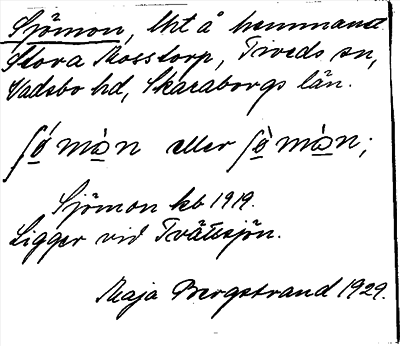 Sjömon, lht å hemmanet
Stora Mosstorp, Tiveds sn,
Vadsbo hd, Skaraborgs län.
ʃö́mȧ̀n eller ʃö̀mȧ̀n;
Sjömon kb 1919.
Ligger vid Tvättsjön.
Maja Bergstrand 1929.